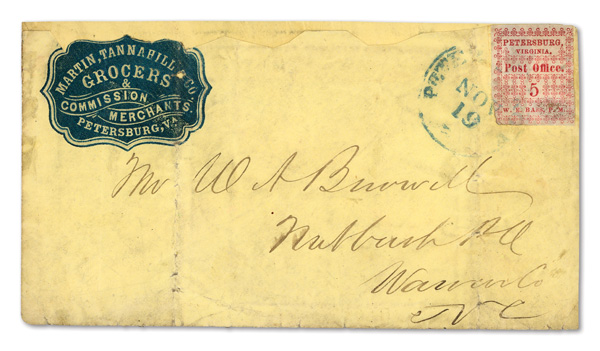 MARTIN, TANNAHILL & CO.
GROCERS
&
COMMISSION
MERCHANTS.
PETERSBURG, VA.
PETE
NOV
19
PETERSBURG,
VIRGINIA,
Post Office.
5
W. E. BASS, P.M.
Mr W A Burwell
Nutbush P.O
Warren Co
N C